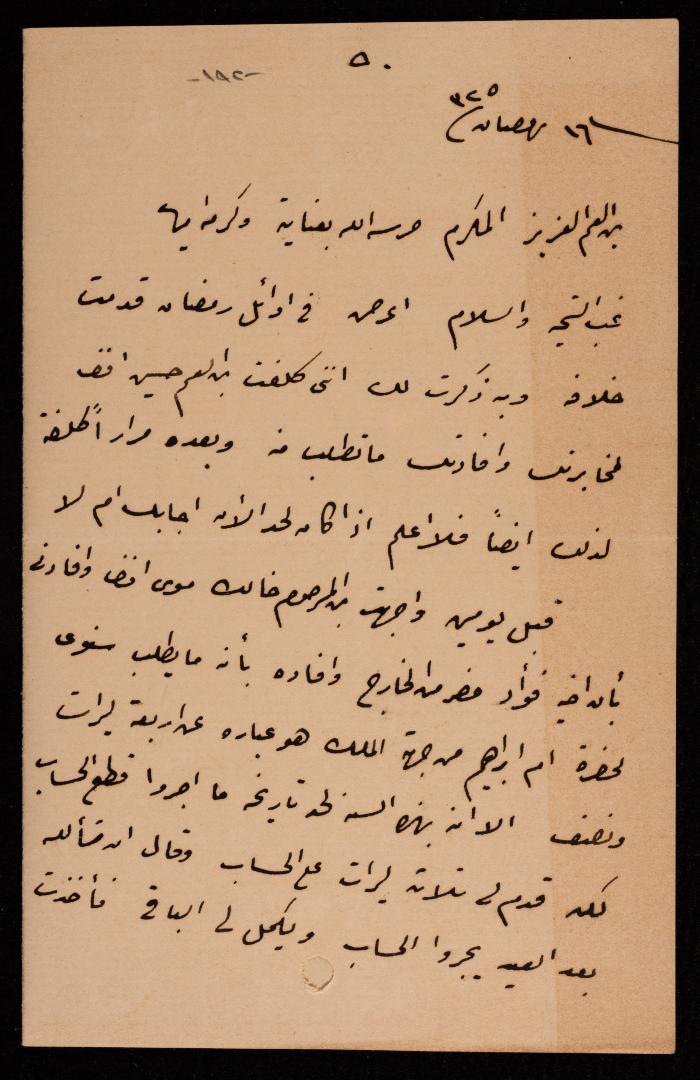 ٥٠
-١٩٢٠-
١٦ رمضان ٣٢٥
ابن العم العزيز المكرم حرسه الله بعنايته وكرمه امين
غب التحية والسلام اعرض في اوائل رمضان قدمت
خلافه وبه ذكرت لك انني كلفت ابن العم حسين افندي
لمخابرتك وافادتك ما تطلب منه وبعده مراراً كلفته
لذلك ايضاً فلا اعلم اذا كان لحد الان اجابك ام لا
قبل يومين واجهت ابن المرحوم خالك موسى افندي وافادني
بأن اخيه فؤاد حضر من الخارج وافاده بأنه ما يطلب سنوي
لحضرة ام ابراهيم من جهة الملك هو عبارة عن اربعة ليرات
ونصف الا انه بهذه السنه لحد تاريخه ما اجروا قطع الحساب
لكنه قدم لي ثلاثة ليرات على الحساب وقال ان شاء الله
بعد العيد يجروا الحساب ويكمل لي الباقي فأخذت